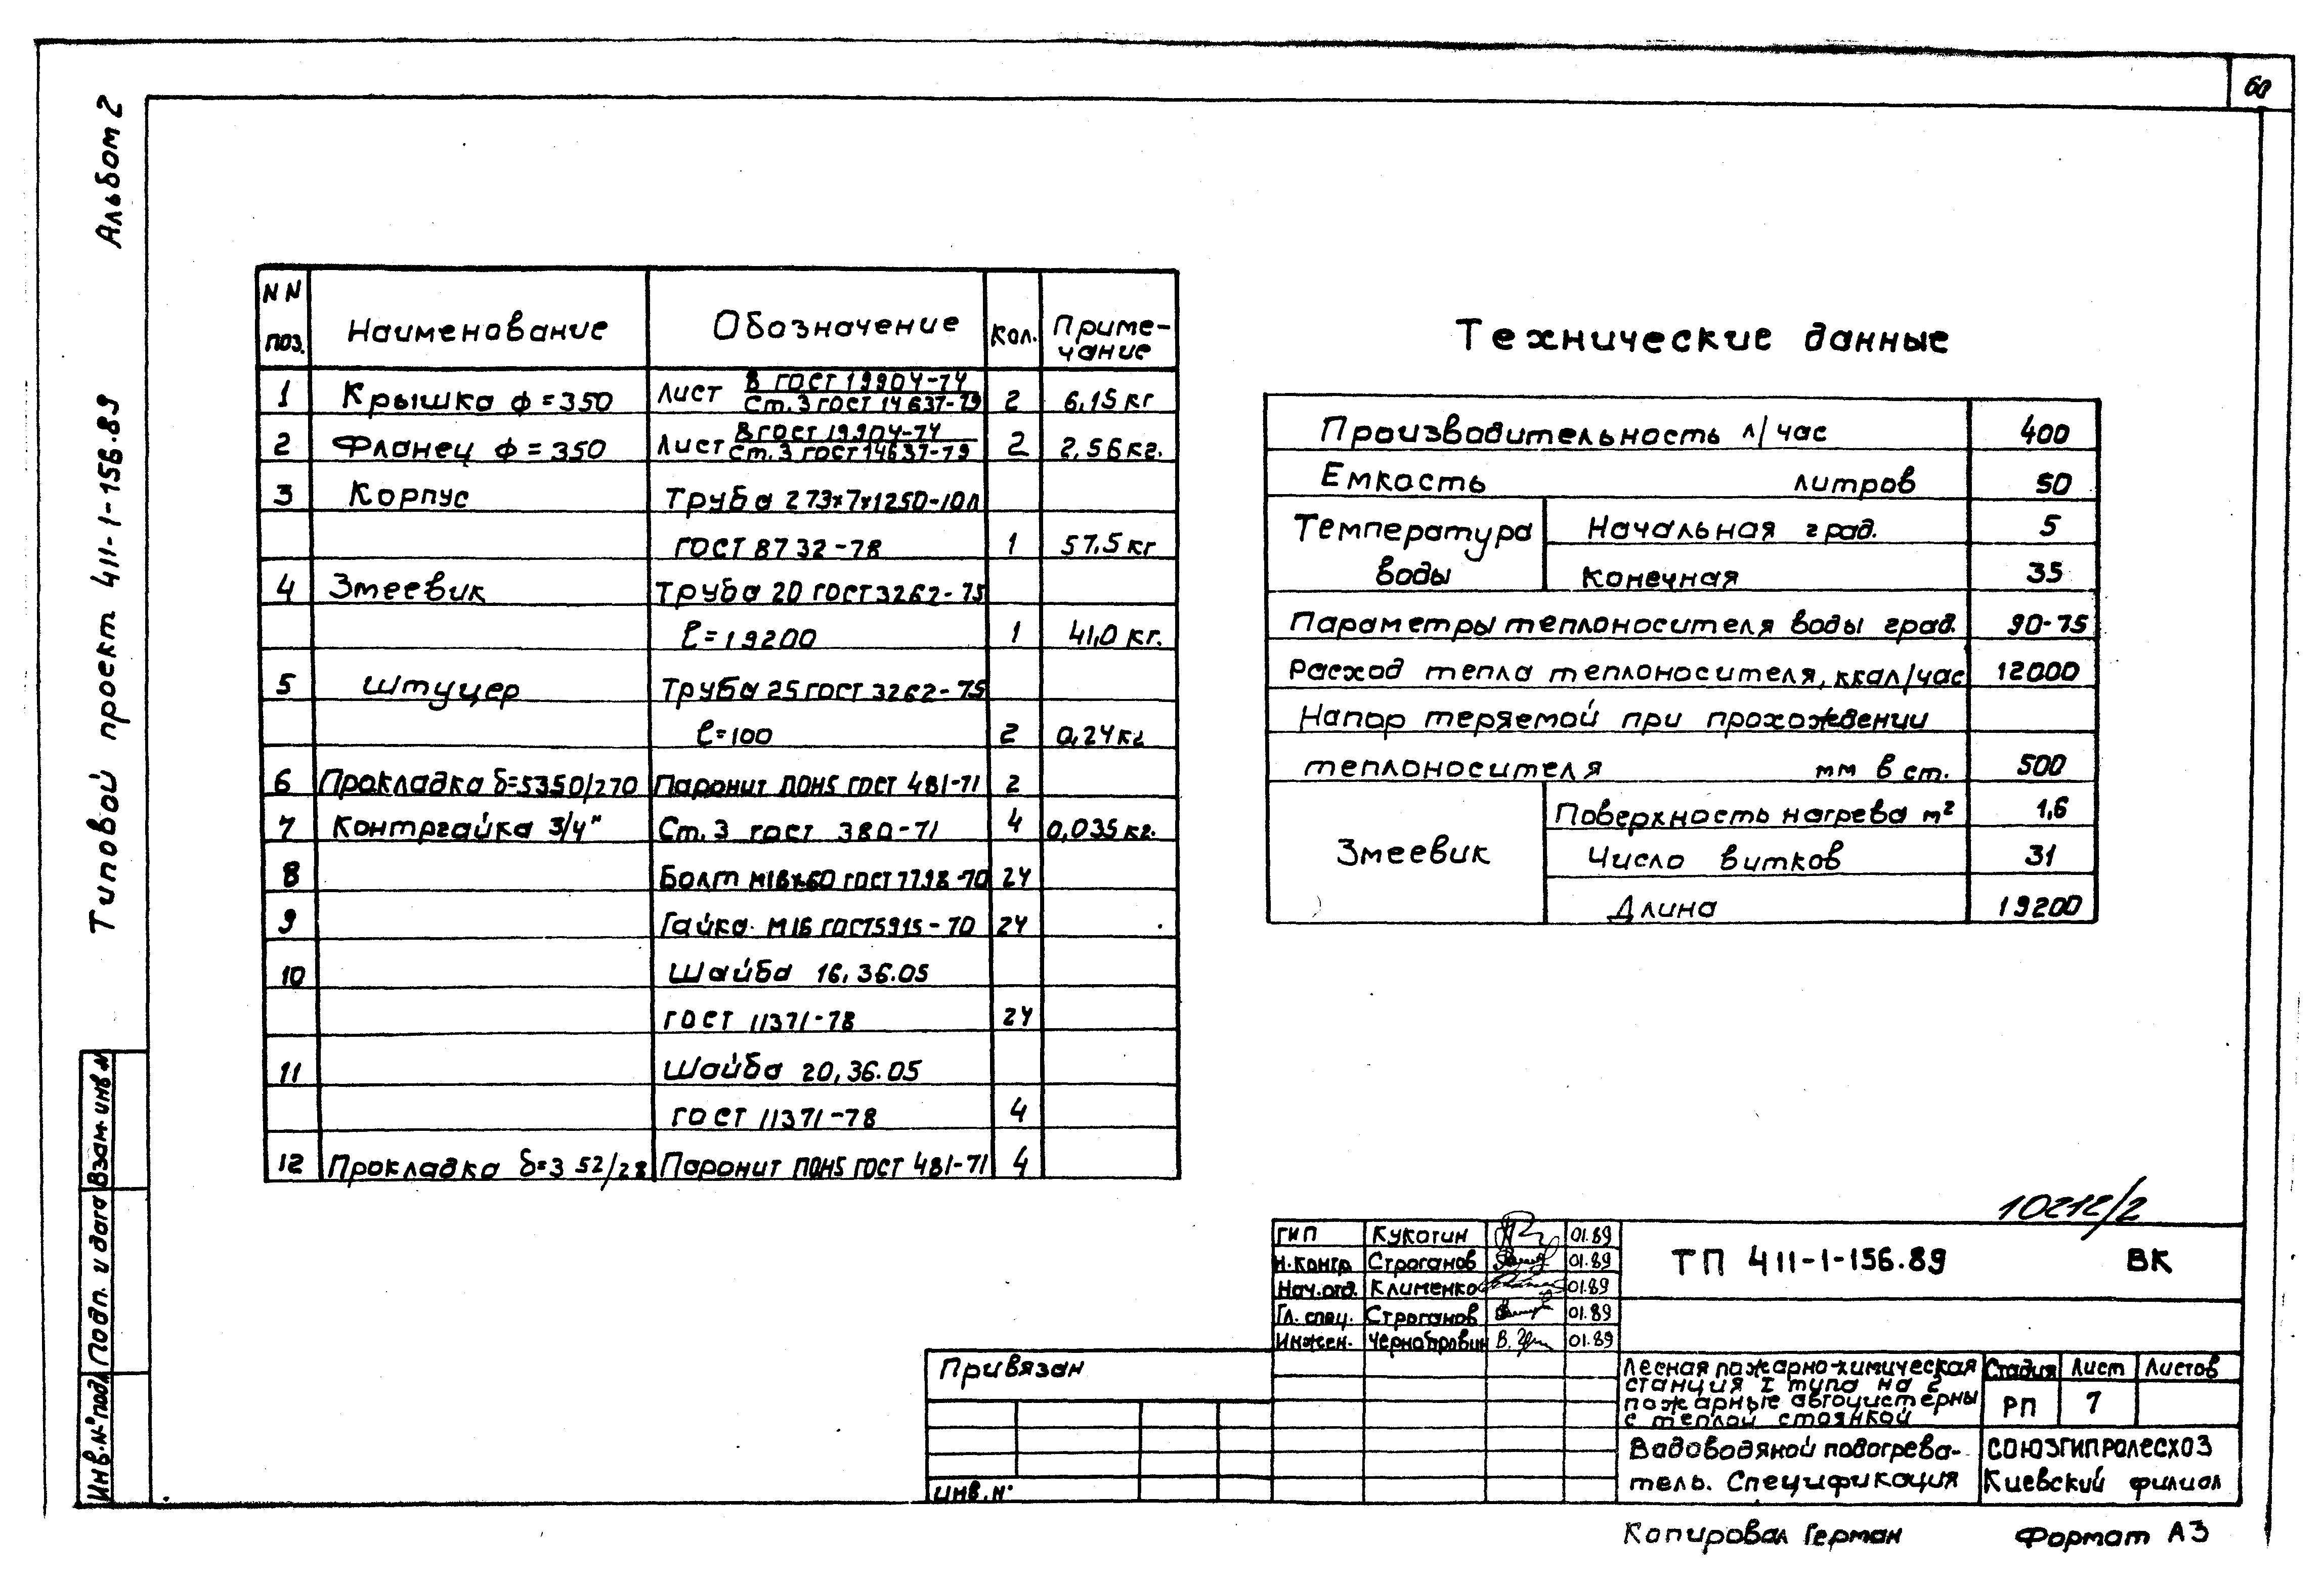 60
Альбом 2
Типовой проект 411-1-156.89
NN поз. Наименование Обозначение Кол. Приме-чание
1 Крышка ф=350 Лист 8 ГОСТ 19904-74 / Ст.3 ГОСТ 14637-79 2 6,15 кг
2 Фланец ф=350 Лист 8 ГОСТ 19904-74 / Ст.3 ГОСТ 14637-79 2 2,56 кг.
3 Корпус Труба 273×7×1250-10Л
ГОСТ 8732-78 1 57,5 кг
4 Змеевик Труба 20 ГОСТ 3262-75
ℓ=19200 1 41,0 кг.
5 Штуцер Труба 25 ГОСТ 3262-75
ℓ=100 2 0,24 кг
6 Прокладка δ=5 350/270 Паронит ПОН5 ГОСТ 481-71 2
7 Контргайка 3/4" Ст.3 ГОСТ 380-71 4 0,035 кг.
8 Болт М16×60 ГОСТ 7798-70 24
9 Гайка М16 ГОСТ 5915-70 24
10 Шайба 16,36.05
ГОСТ 11371-78 24
11 Шайба 20,36.05
ГОСТ 11371-78 4
12 Прокладка δ=3 52/28 Паронит ПОН5 ГОСТ 481-71 4
Технические данные
Производительность л/час 400
Емкость литров 50
Температура воды Начальная град. 5
Конечная 35
Параметры теплоносителя воды град. 90-75
Расход тепла теплоносителя, ккал/час 12000
Напор теряемой при прохождении
теплоносителя мм в ст. 500
Змеевик Поверхность нагрева м² 1,6
Число витков 31
Длина 19200
Взам. инв. N
Подп. и дата
Инв. N° подл
10212/2
ГИП Кукотин 01.89
Н. контр. Строганов 01.89
Нач. отд. Клименко 01.89
Гл. спец. Строганов 01.89
Инжен. Чернобровин 01.89
ТП 411-1-156.89 ВК
Привязан
инв. N°
Лесная пожарно-химическая
станция I типа на 2
пожарные автоцистерны
с теплой стоянкой
Стадия Лист Листов
РП 7
Вадоводяной подогрева-
тель. Спецификация
СОЮЗГИПРОЛЕСХОЗ
Киевский филиал
Копировал Герман
Формат А3